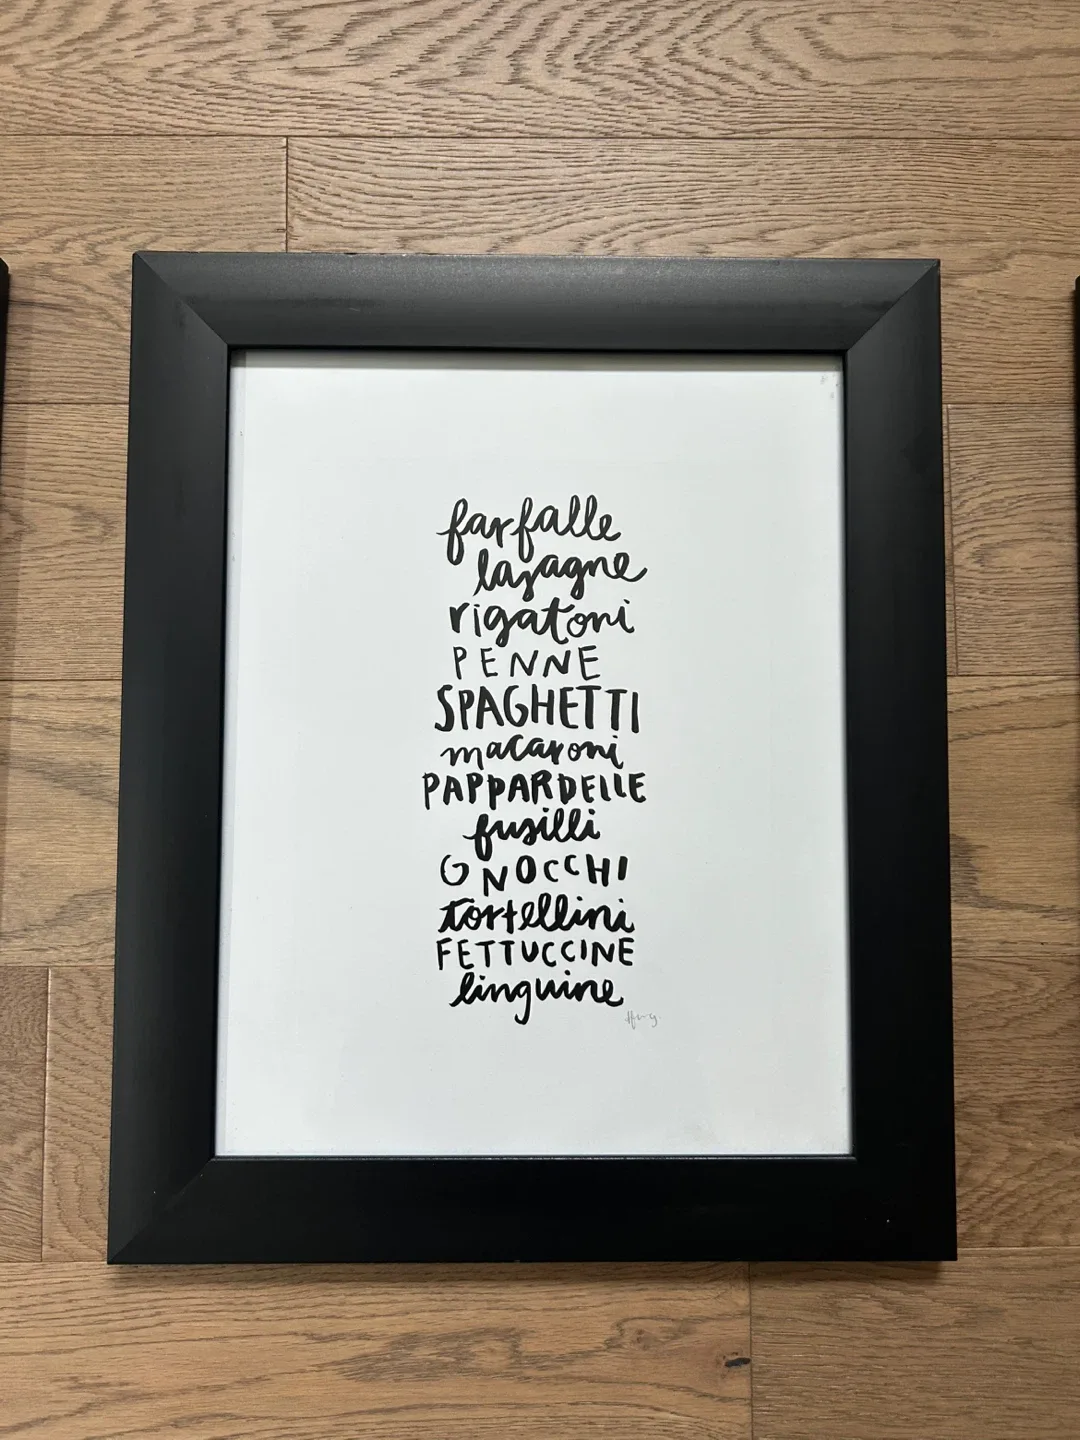 farfalle
lasagne
rigatoni
PENNE
SPAGHETTI
macaroni
PAPPARDELLE
fusilli
GNOCCHI
tortellini
FETTUCCINE
linguine